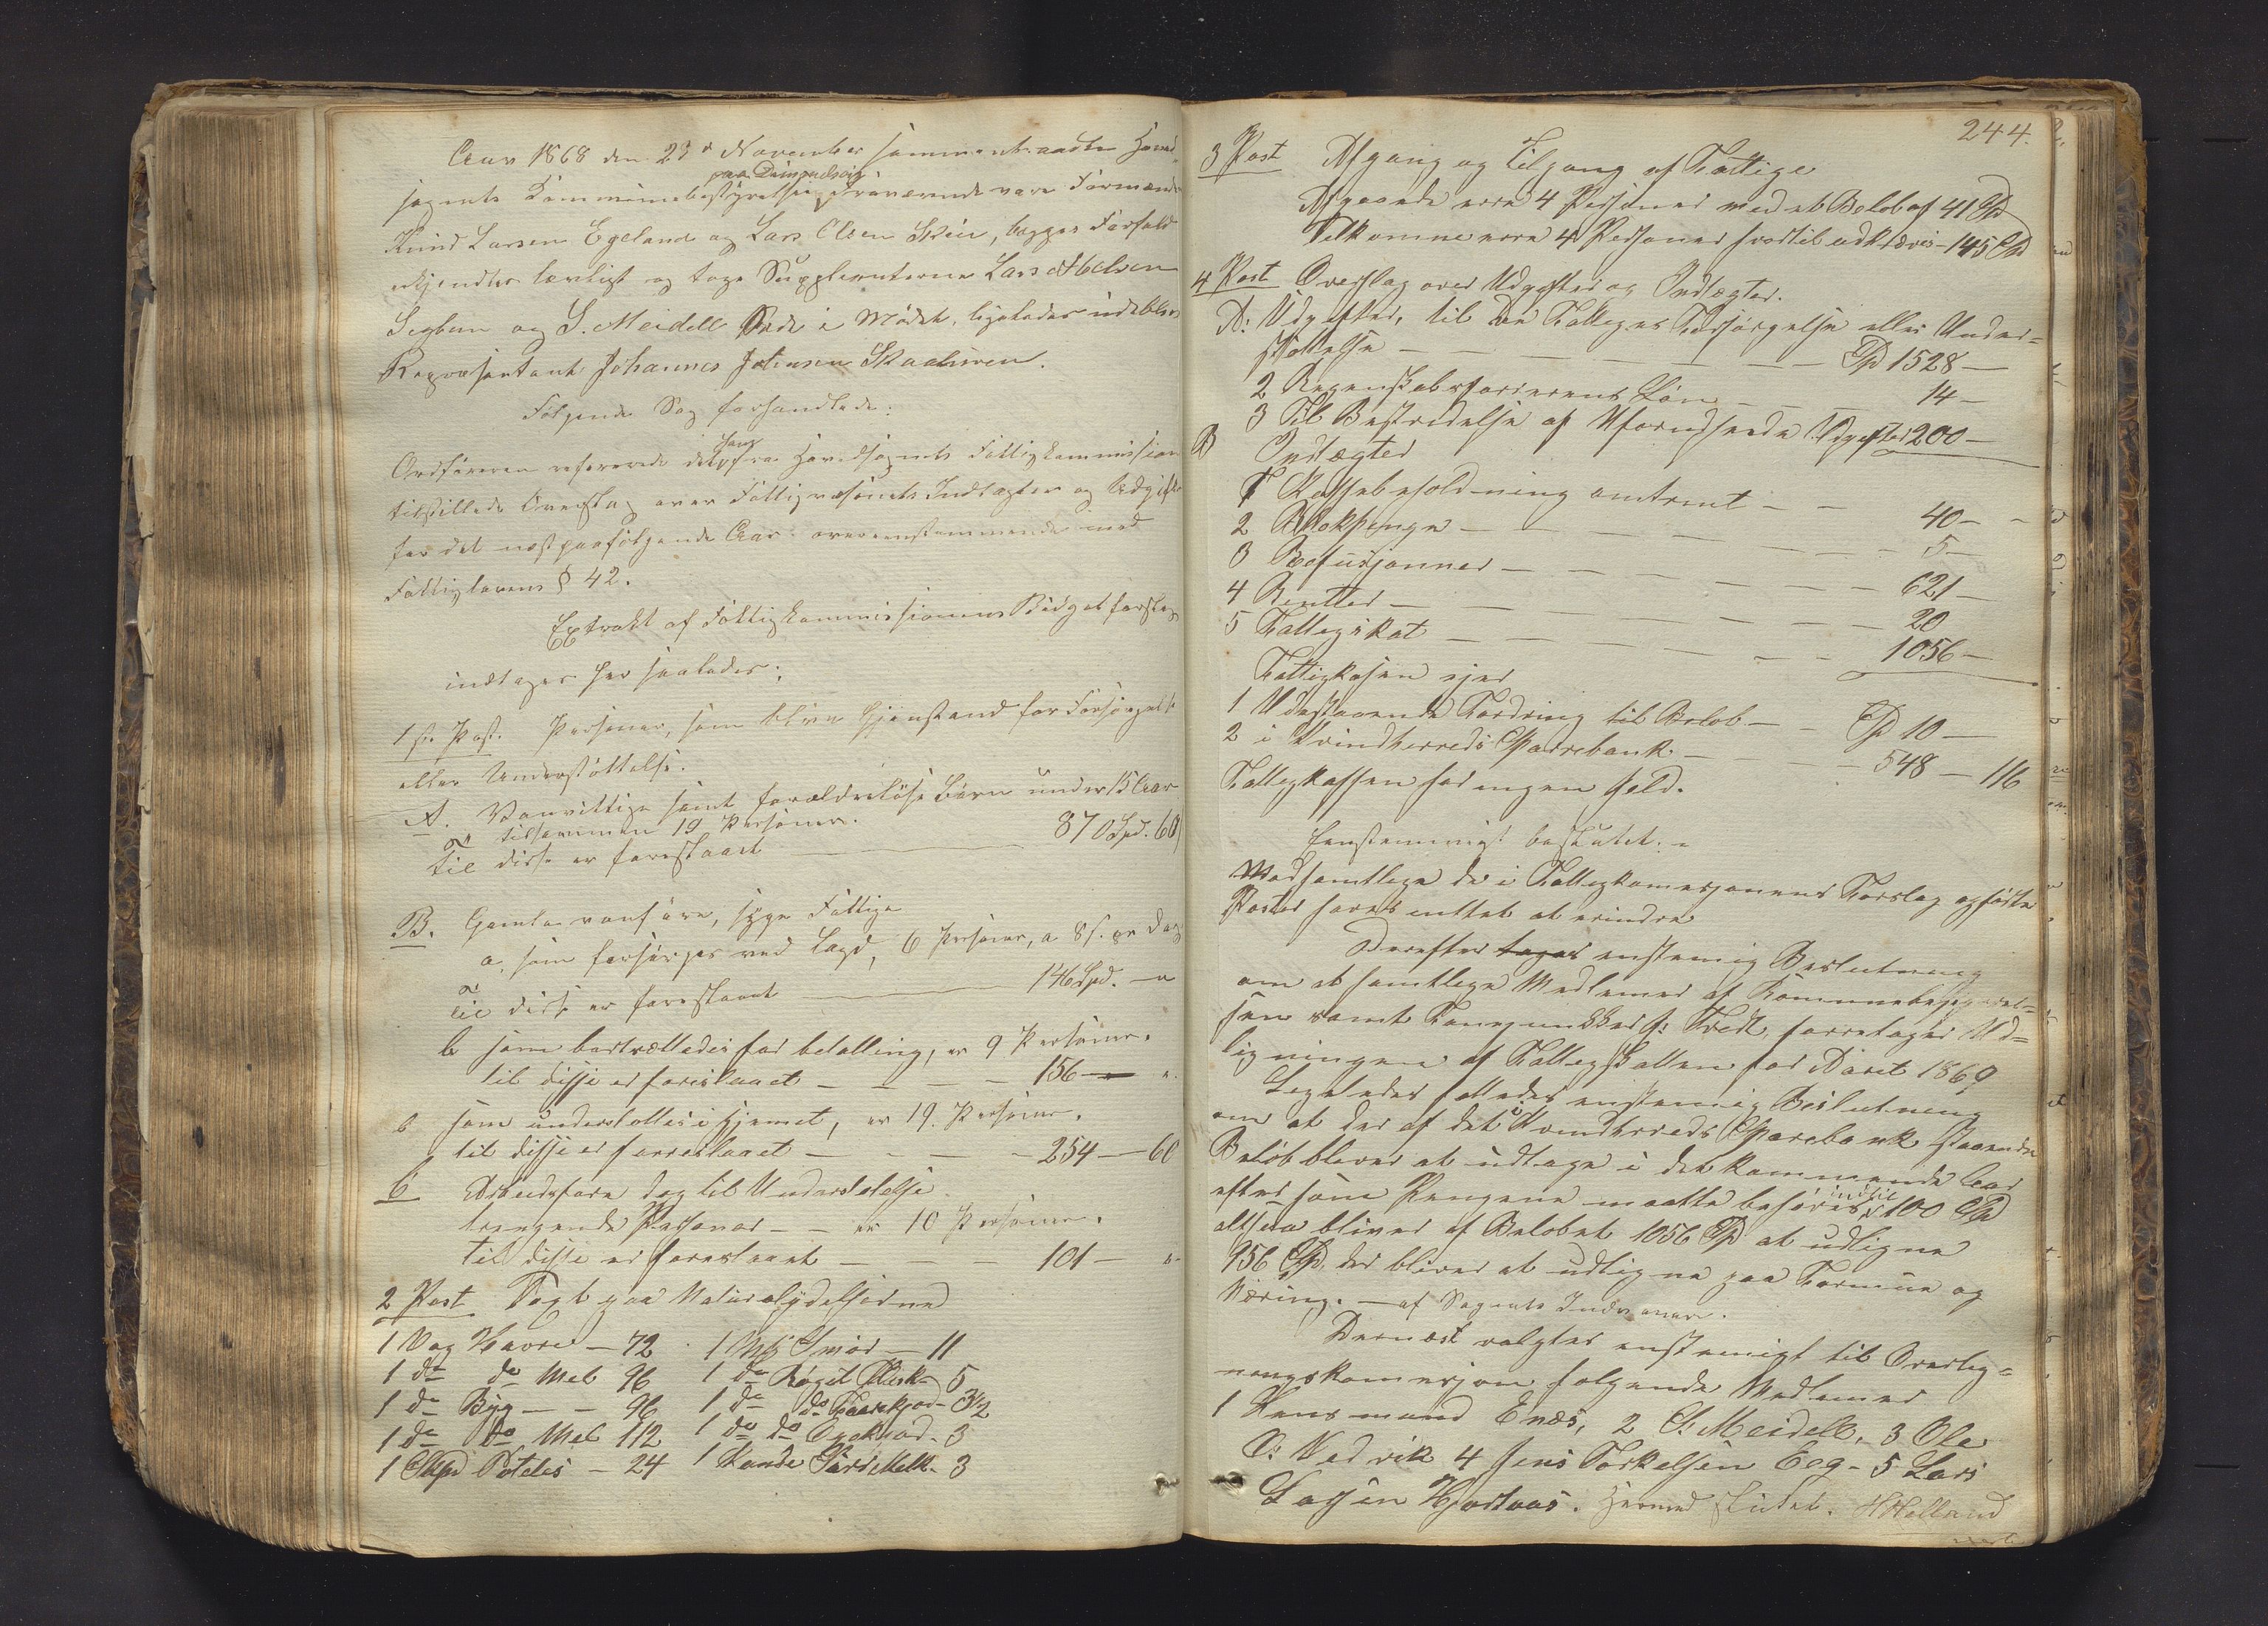 Aar 1868 den 23de November sammentraadte Hoved-
sognets Kommunebestyrelse paa Dimmelsvig, fraværende vare Formænde
Knud Larsen Egeland og Lars Olsen Skeie, begges Forfald
erkjendtes lovligt og toge Suppleanterne Lars Abelsen
Segbum og S. Meidell Sæde i Mødet, ligeledes udeblev
Repræsentant Johannes Johnsen Skaaluren.
Følgende Sag forhandlede:
Ordføreren refererede det ham fra Hovedsognets Fattigkommission
tilstillede Overslag over Fattigvæsenets Indtægter og Udgifter
for det næstpaafølgende Aar overeensstemmende med
Fattiglovens § 42.
Extrakt af Fattigkommissionens Budgetforslag
indtages her saaledes:
1ste Post. Personer, som blive Gjenstand for Forsørgelse
eller Understøttelse.
A. Vanvittige samt forældreløse Børn under 15 Aar
tilsammen 19 Personer.
Til disse er foreslaaet — 870 Spd. 60
B. Gamle vanføre, syge Fattige
a, som forsørges ved Lægd, 6 Personer, a 8 s. pr Dag
Til disse er foreslaaet — 146 Spd. — "
b som bortsættedes for betalling, er 9 Personer.
til disse er foreslaaet — 156 — "
c som understøttes i Hjemet, er 19. Personer.
til disse er foreslaaet — 254 — 60
C Arbeidsføre dog til Understøtelse
trengende Personer — er 10 Personer.
til disse er foreslaaet — 101 — "
2 Post Taxt paa Naturalydelserne
1 Vog Havre — 72 1 Mk Smør — 11
1 do do Mel 96 1 do Røget Flesk — 5
1 do Byg — 96 1 do do Faarekjød — 3½
1 do do Mel 112 1 do do Oxekiød — 3
1 Skpd Poteles — 24 1 Kande Suur Melk — 3
244.
3 Post Afgang og Tilgang af Fattige
Afgaaede ere 4 Personer med et Beløb af 41 Spd
Telkomne ere 4 Personer hvortil udkræves — 145 Spd
4 Post Overslag over Udgyfter og Indtægter.
A: Udgyfter, til de Fatteges Forsørgelse eller Under-
støttelse — Spd 1528 —
2 Regenskabsførerens Løn — 14 —
3 Til Bestridelse af Uforudseede Udgyfter 200 —
B Indtægter
1 Kassebeholdning omtrent — 40 —
2 Blokpenge — 5 —
3 Refusjonner — 621 —
4 Rentter — 20
5 Fattegskat — 1056 —
Fattigkasen ejer
1 Udestaaende Fordring til Beløb — Spd 10 —
2 i Kvindherreds Sparrebank — 548 — 116
Fattegkassen har ingen Gjeld.
Eenstemmigt besluttet. —
Mod samtlege de i Fattegkomesjonens Forslag opførte
Poster haves inttet at erindre
Derefter toges enstemig Beslutning
om at samtlege Medlemer af Kommunebestyrel-
sen samt J: Tvedt, forretager Ud-
ligningen af Fattegskatten for Aaret 1869,
Legeledes fattedes enstemig Beslutning
om at der af det i Kvindherreds Sparebank staaende
Beløb bliver at udtage i det kommende Aar
efter som Pengene maatte behøves indtil 100 Spd
altsaa bliver af Beløbet 1056 Spd at udligne
956 Spd. der bliver at udligne paa Formue og
Næring. — af Sognets Indvaanere.
Dernæst valgtes enstemigt til Overlig-
nengskomesjon følgende Medlemer
1 Lensmand Enæs, 2 S. Meidell, 3 Ole
O: Nedrik 4 Jens Torkelsen Eeg — 5 Lars
Larsen Hjortaas. Hermed sluttet. HHelland